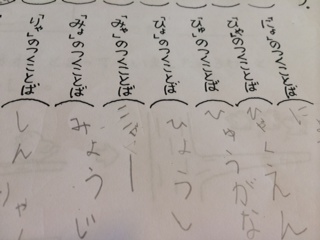 のつくことば（に
「ひゃ」のつくことば（ひゃくえん
「ひゅ」のつくことば（ひゅうがな
「ひょ」のつくことば（ひょうし
「みゃ」のつくことば（ミャー
「みょ」のつくことば（みょうじ
「りゃ」のつくことば（しんりゃ